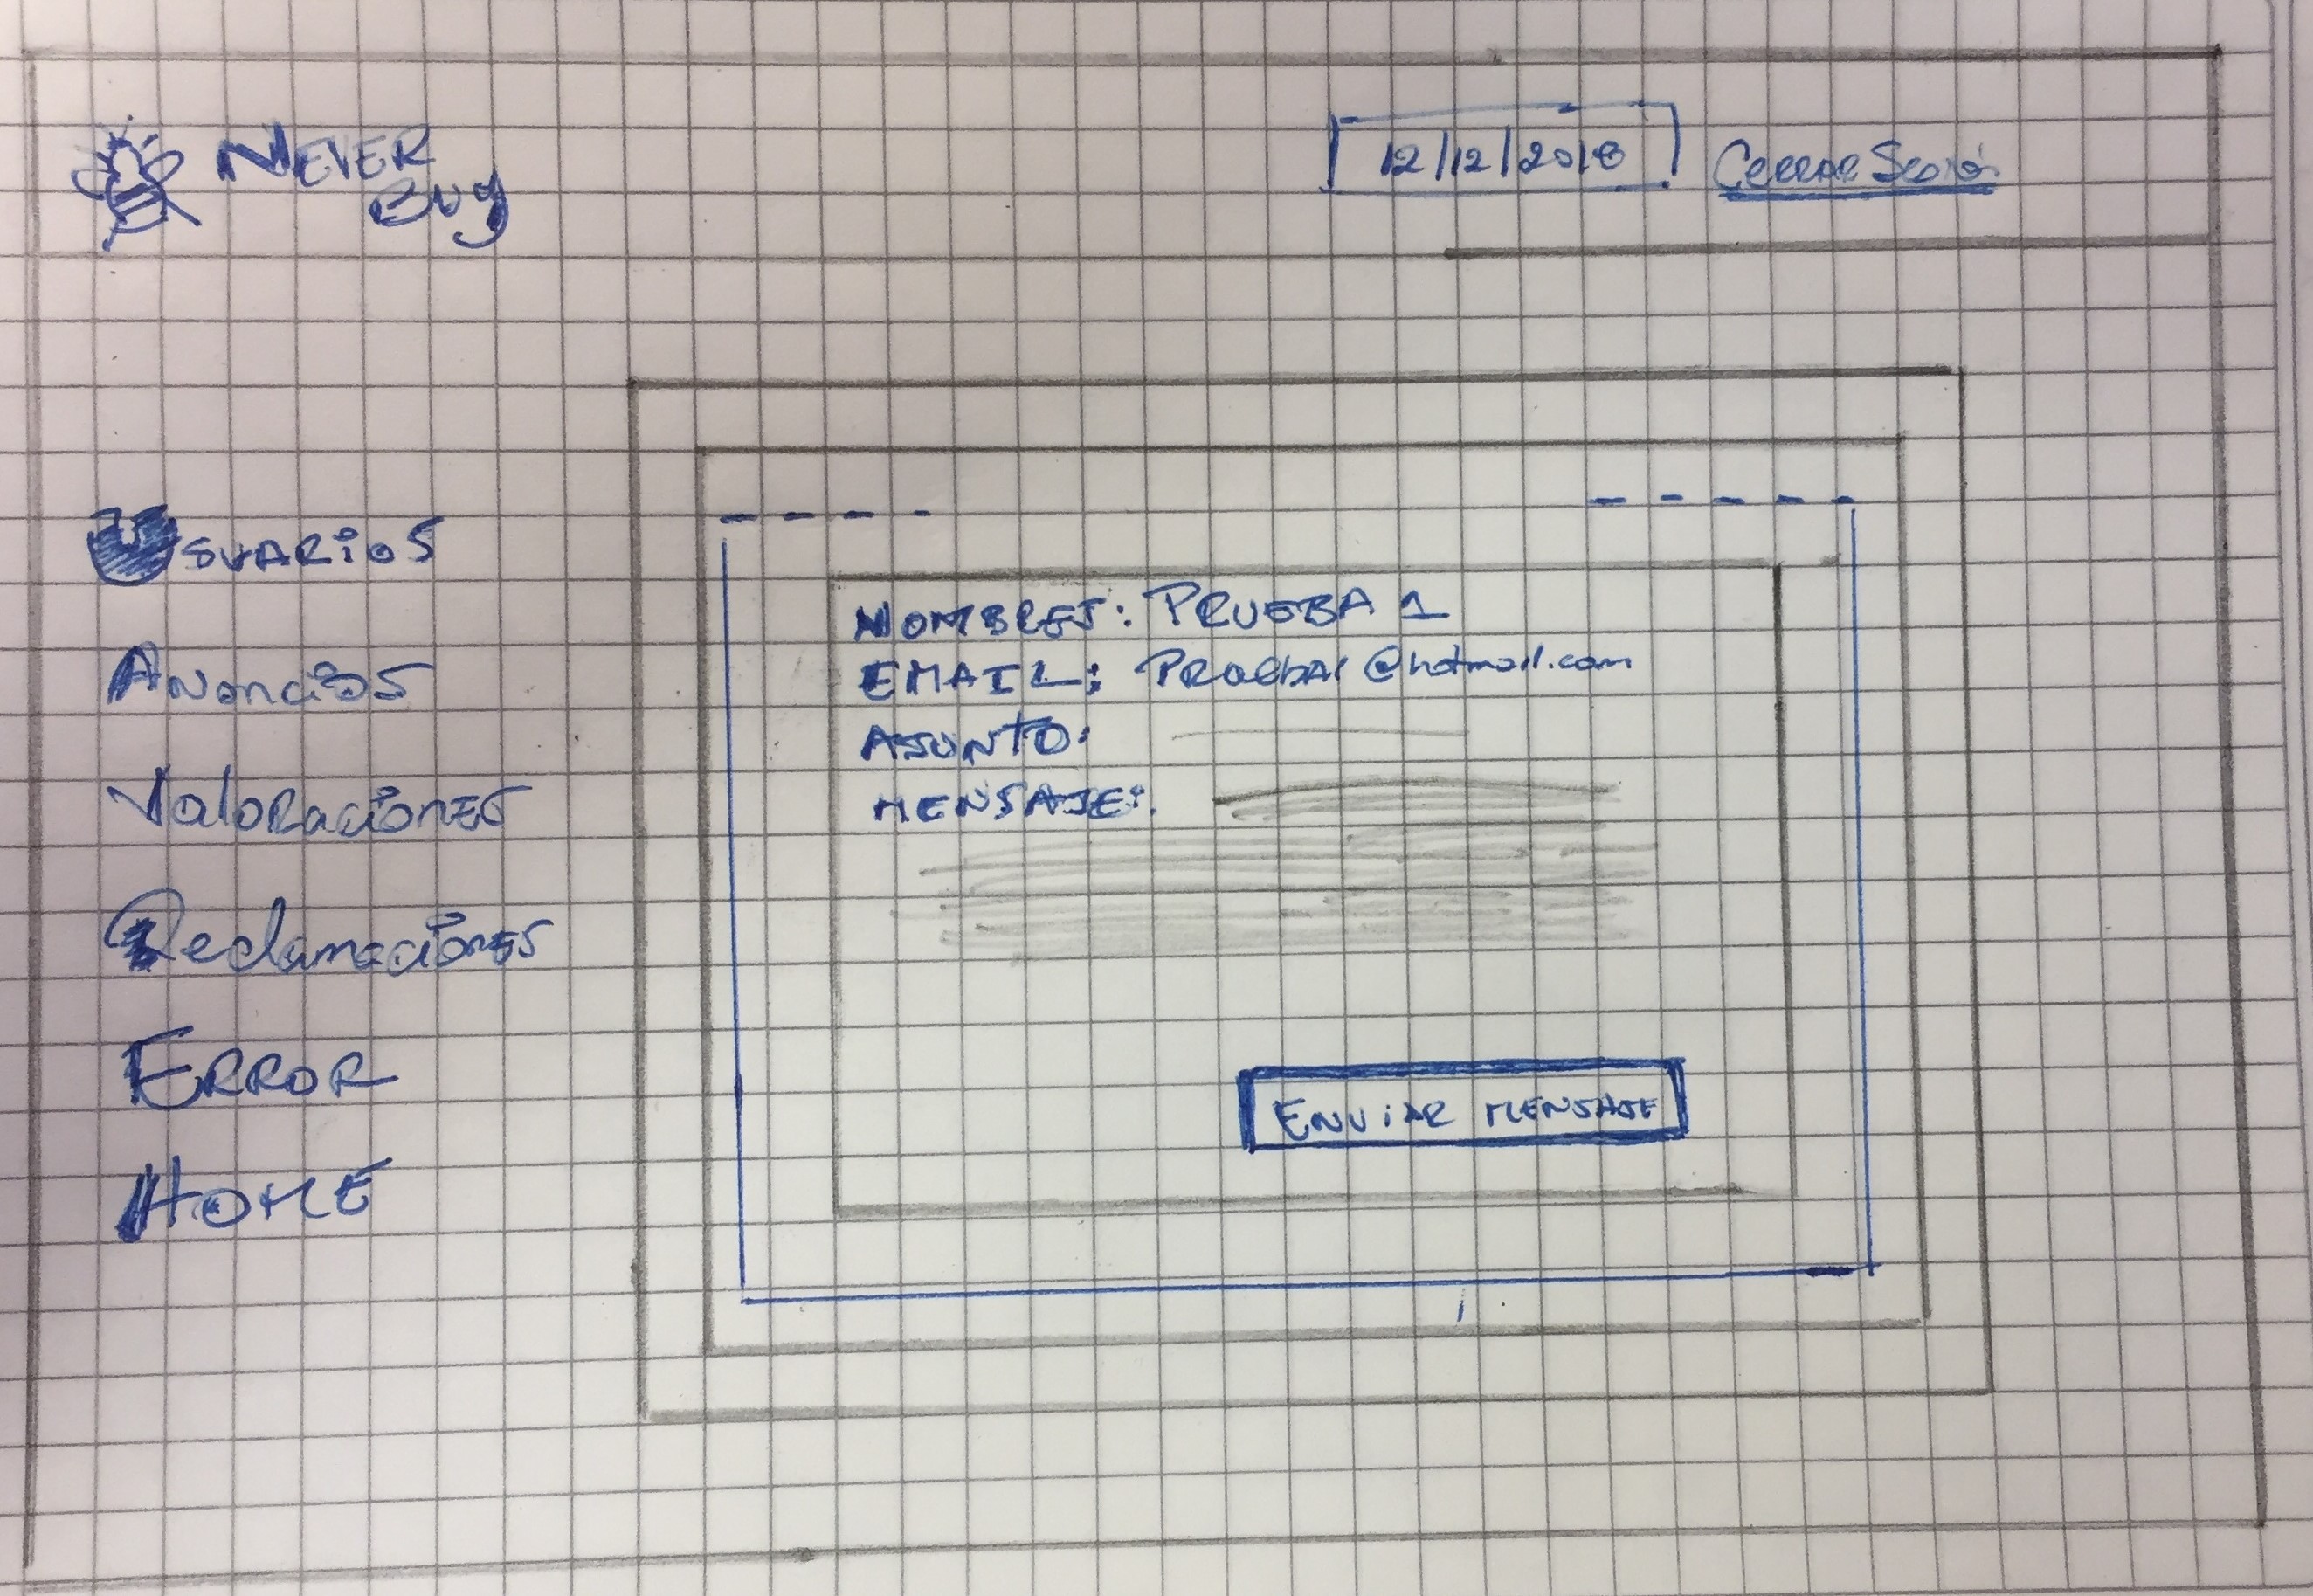 NEVER
Bug
12/12/2018
CERRAR Sesión
USUARIOS
Anuncios
ValoRacionES
ReclamacionES
ERROR
HOME
NOMBRES: PRUEBA 1
EMAIL: PRuebA1@hotmail.com
ASUNTO:
MENSAJE:
ENViAR MENSAJE